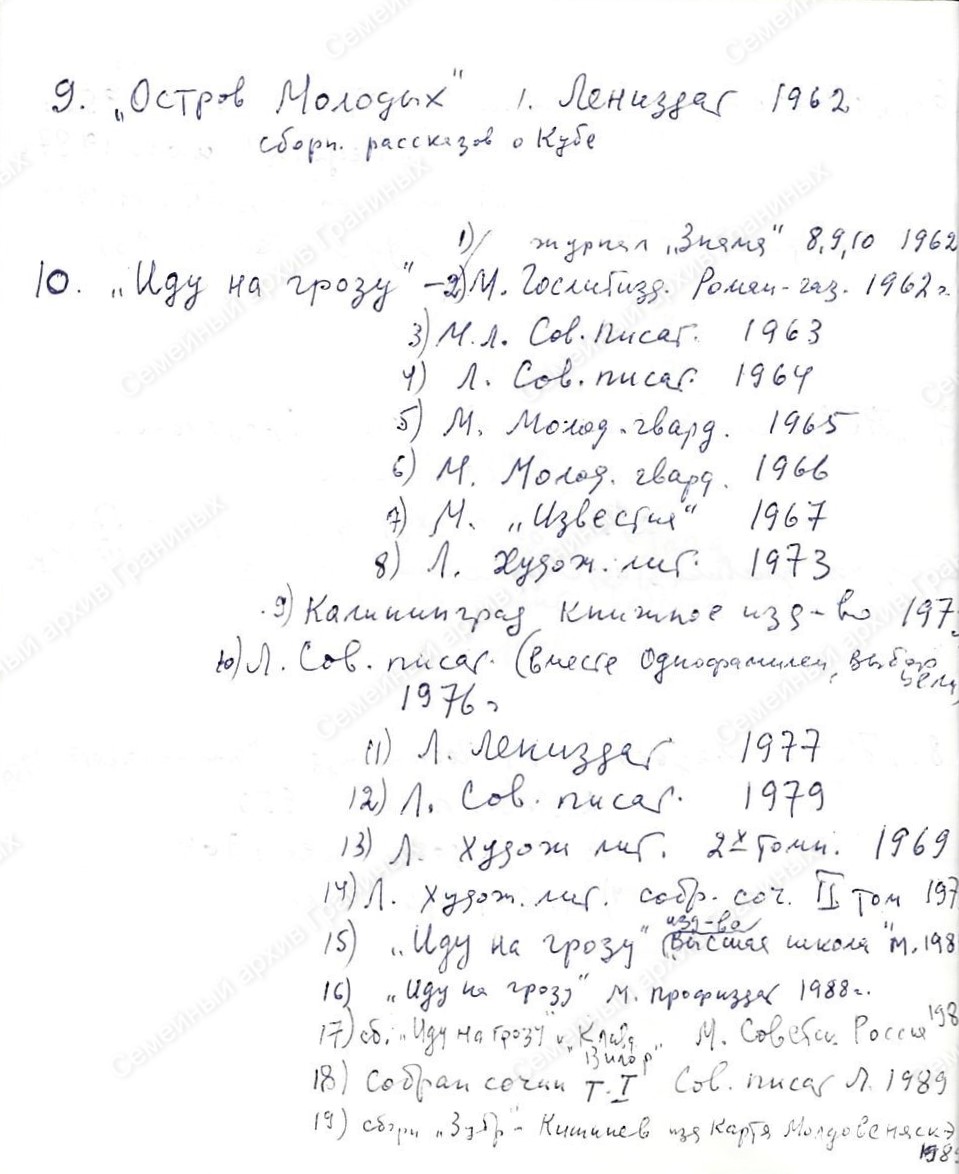 9. „Остров Молодых" 1. Лениздат 1962
сборн. рассказов о Кубе
1) журнал „Знамя" 8,9,10 1962
10. „Иду на грозу" – 2) М. Гослитизд. Роман-газ. 1962г.
3) М.Л. Сов. писат. 1963
4) Л. Сов. писат. 1964
5) М. Молод. гвард. 1965
6) М. Молод. гвард. 1966
7) М. „Известия" 1967
8) Л. Худож. лит. 1973
9) Калининград Книжное изд-во 197
10) Л. Сов. писат. (вместе Однофамилец, выбор цели)
1976 г
11) Л. Лениздат 1977
12) Л. Сов. писат. 1979
13) Л. Худож лит. 2х томн. 1969
14) Л. Худож. лит. собр. соч. II том 197
изд-во
15) „Иду на грозу" (Высшая школа" М. 198
16) „Иду на грозу" М. Профиздат 1988г.
17) сб. „Иду на грозу" и „Клавдия Вилор" М. Советск. Россия 198
18) Собран сочин Т. I Сов. писат Л. 1989
19) сборн „Зубр" - Кишинев изд Картя Молдовеняскэ
198
Семейный архив Граниных